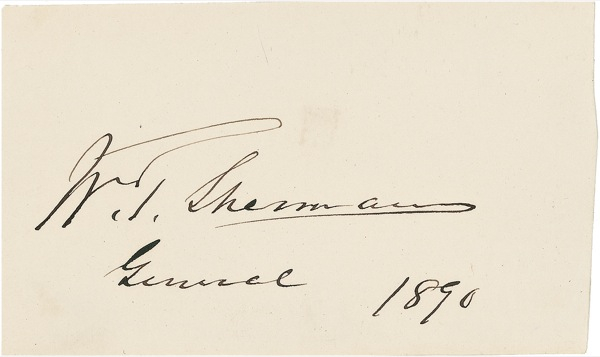 W. T. Sherman
General 1890